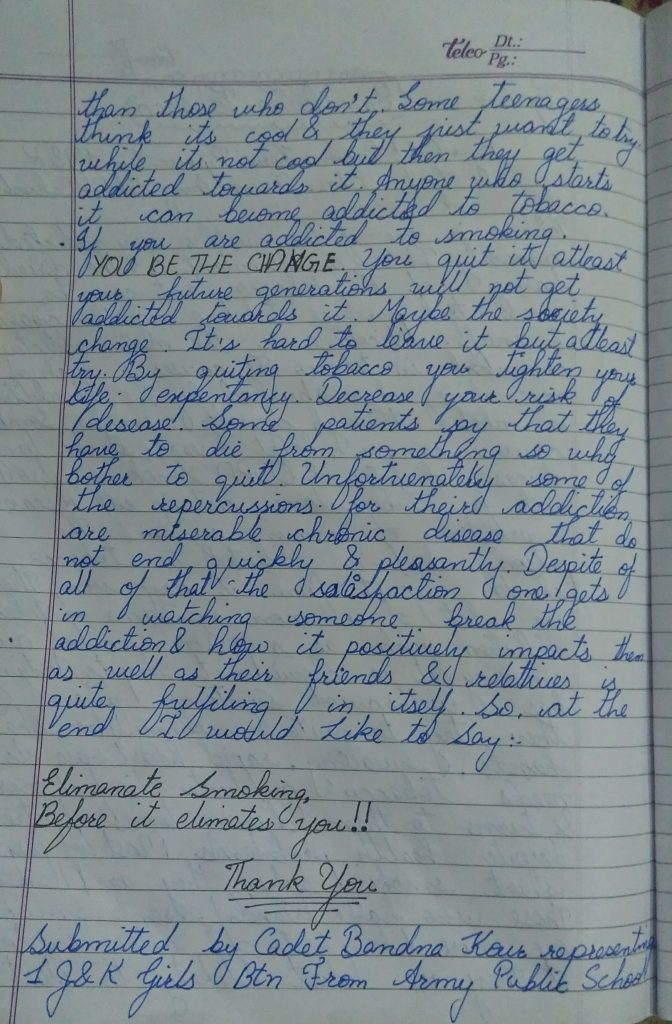 Telco Dt.:
Pg.:
than those who don't. Some teenagess
think its cool & they just want to try
while its not cool but then they get
addicted towards it. Anyone who starts
it can become addicted to tobacco.
If you are addicted to smoking.
YOU BE THE CHANGE. You quit it atleast
your future generations will not get
addicted towards it. Maybe the society
change. It's hard to leave it but atleast
try. By quiting tobacco you tighten your
life expentancy. Decrease your risk of
desease. Some patients say that they
have to die from something so why
bother to quit. Unfortuenately some of
the repercussions for their addiction
are miserable chronic disease that do
not end quickly & pleasantly. Despite of
all of that the satisfaction one gets
in watching someone break the
addiction & how it positively impacts them
as well as their friends & relatives is
quite fulfiling in itself. So, at the
end I would like to say:-
Elimanate Smoking,
Before it elimates you!!
Thank You
Submitted by Cadet Bandna Kour representing
1 J&K Girls Btn From Army Public School